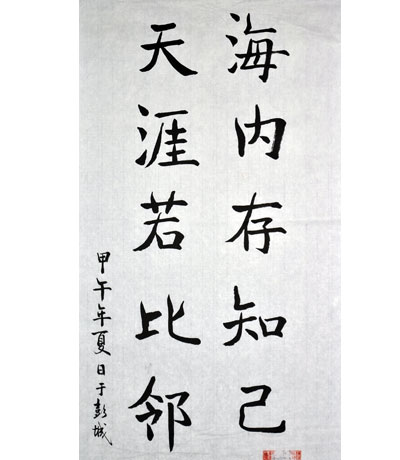 海内存知己
天涯若比邻
甲午年夏日于彭城